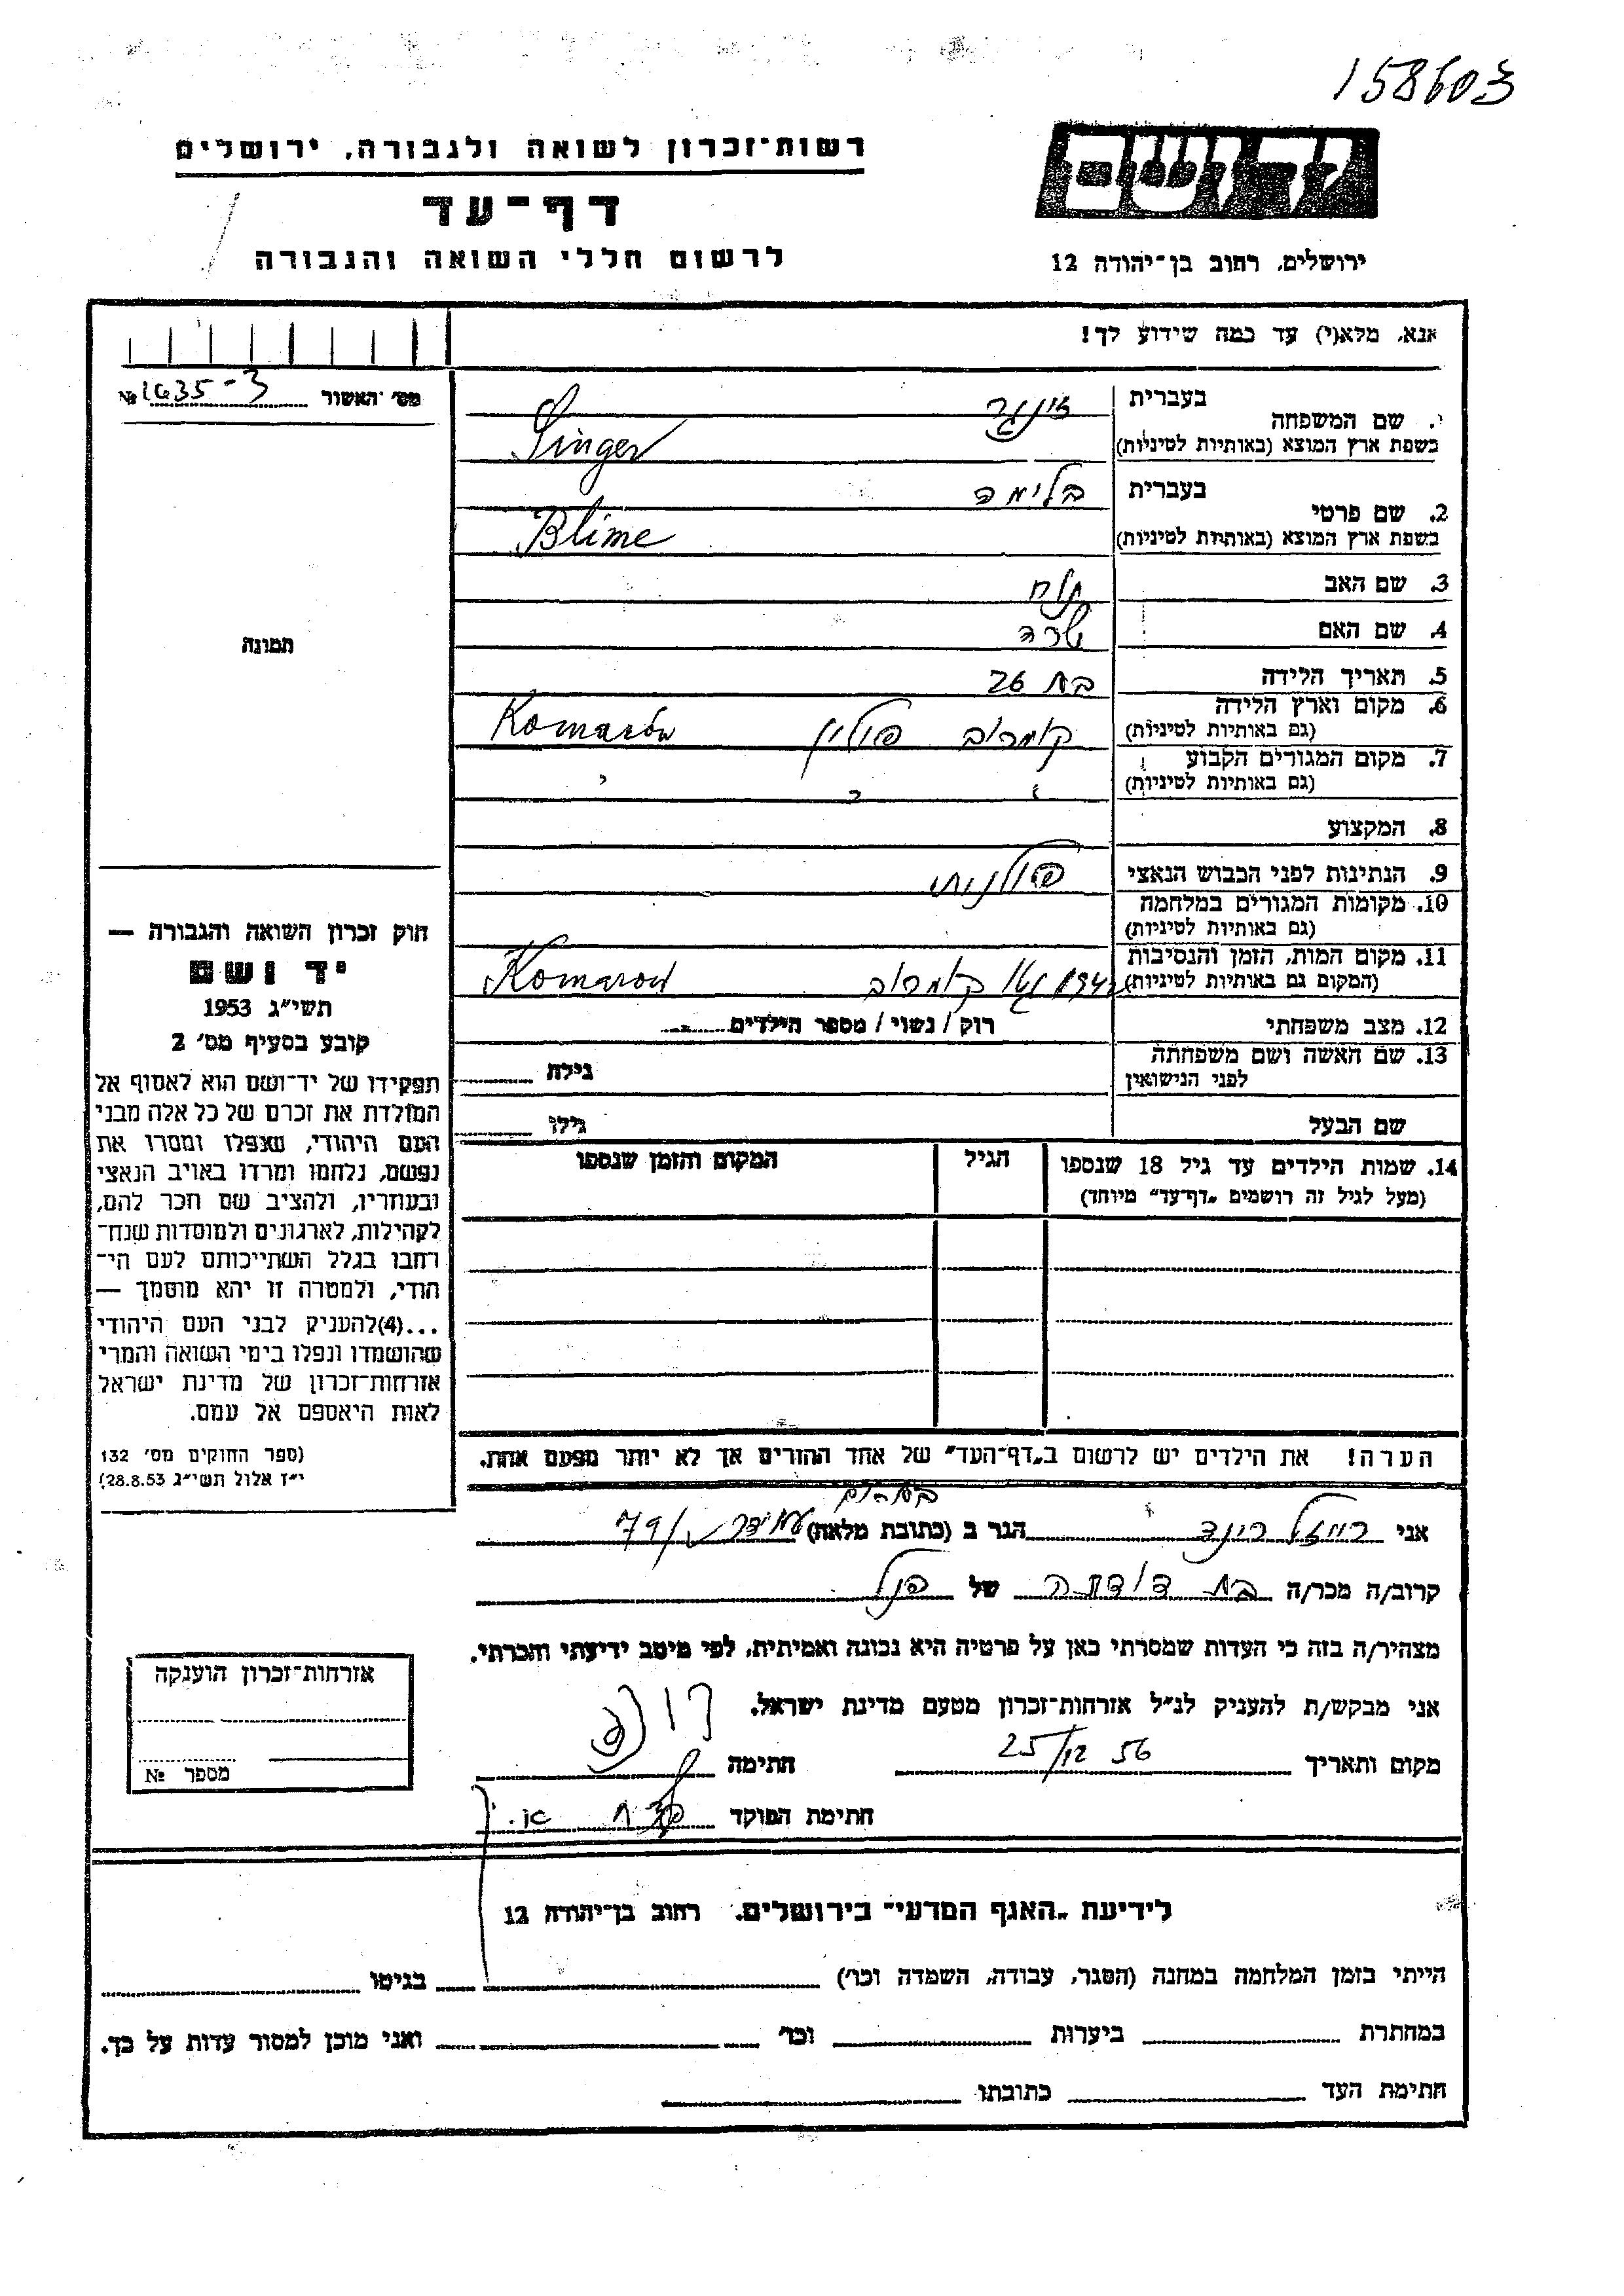 158603
רשות־זכרון לשואה ולגבורה, ירושלים
דף־עד
לרשום חללי השואה והגבורה
ידושם
ירושלים, רחוב בן־יהודה 12
אנא, מלא(י) עד כמה שידוע לך!
מס׳ האשור № 1635-3
1. שם המשפחה בעברית זינגר
בשפת ארץ המוצא (באותיות לטיניות) Singer
2. שם פרטי בעברית בלימה
בשפת ארץ המוצא (באותיות לטיניות) Blime
3. שם האב
4. שם האם שרה
5. תאריך הלידה בת 26
6. מקום וארץ הלידה (גם באותיות לטיניות) קומרוב פולין Komarów
7. מקום המגורים הקבוע (גם באותיות לטיניות) " " "
8. המקצוע
9. הנתינות לפני הכבוש הנאצי פולנית
10. מקומות המגורים במלחמה (גם באותיות לטיניות)
11. מקום המות, הזמן והנסיבות (המקום גם באותיות לטיניות) 1942 קומרוב Komarow
12. מצב משפחתי רוק / נשוי / מספר הילדים
13. שם האשה ושם משפחתה לפני הנישואין גילה
שם הבעל גילו
14. שמות הילדים עד גיל 18 שנספו
(מעל לגיל זה רושמים „דף־עד״ מיוחד)
הגיל
המקום והזמן שנספו
תמונה
חוק זכרון השואה והגבורה —
יד ושם
תשי״ג 1953
קובע בסעיף מס׳ 2
תפקידו של יד־ושם הוא לאסוף אל
המולדת את זכרם של כל אלה מבני
העם היהודי, שנפלו ומסרו את
נפשם, נלחמו ומרדו באויב הנאצי
ובעוזריו, ולהציב שם וזכר להם,
לקהילות, לארגונים ולמוסדות שנח־
רבו בגלל השתייכותם לעם הי־
הודי, ולמטרה זו יהא מוסמך —
...(4)להעניק לבני העם היהודי
שהושמדו ונפלו בימי השואה והמרי
אזרחות־זכרון של מדינת ישראל
לאות היאספם אל עמם.
(ספר החוקים מס׳ 132
י״ז אלול תשי״ג 28.8.53)
הערה! את הילדים יש לרשום ב„דף־העד״ של אחד ההורים אך לא יותר מפעם אחת.
אני רייזל רינד הגר ב (כתובת מלאה) 79/
קרוב/ה מכר/ה בת דודתה של הנ״ל
מצהיר/ה בזה כי העדות שמסרתי כאן על פרטיה היא נכונה ואמיתית, לפי מיטב ידיעתי והכרתי.
אני מבקש/ת להעניק לנ״ל אזרחות־זכרון מטעם מדינת ישראל.
מקום ותאריך 25/12 56 חתימה
חתימת הפוקד
אזרחות־זכרון הוענקה
מספר №
לידיעת „האגף המדעי״ בירושלים. רחוב בן־יהודה 12
הייתי בזמן המלחמה במחנה (הסגר, עבודה, השמדה וכו׳) בגיטו
במחתרת ביערות וכו׳ ואני מוכן למסור עדות על כך.
חתימת העד כתובתו